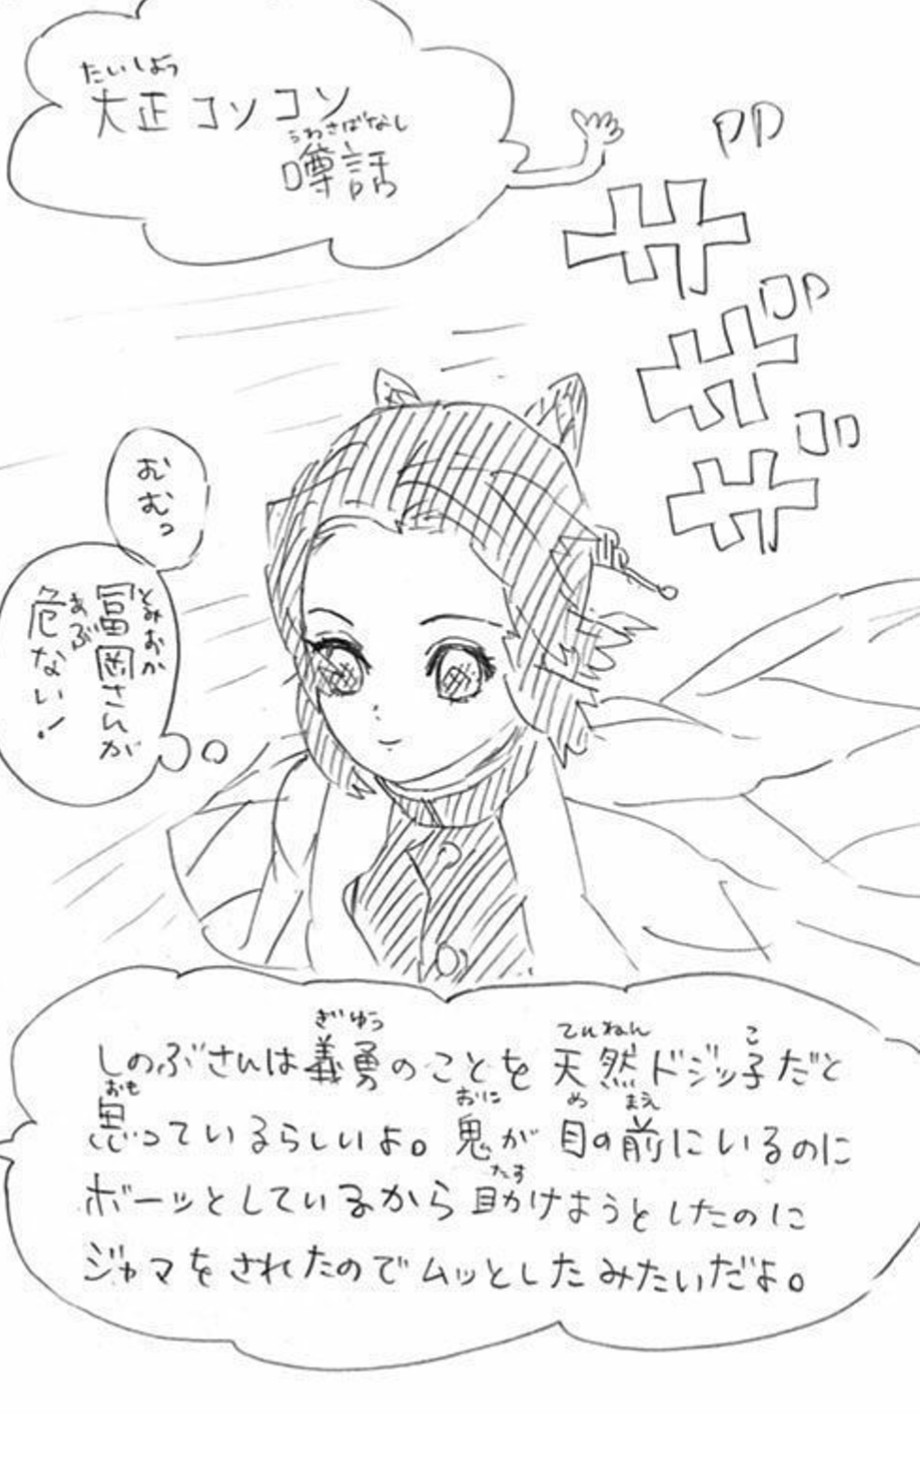 たいしょう
大正コソコソ
うわさばなし
噂話
ザ
ザ
ザ
むむっ
冨岡さんが
とみおか
危ない!
あぶ
ぎゆう てんねん こ
しのぶさんは義勇のことを天然ドジッ子だと
おも おに め まえ
思っているらしいよ。鬼が目の前にいるのに
たす
ボーッとしているから助けようとしたのに
ジャマをされたのでムッとしたみたいだよ。